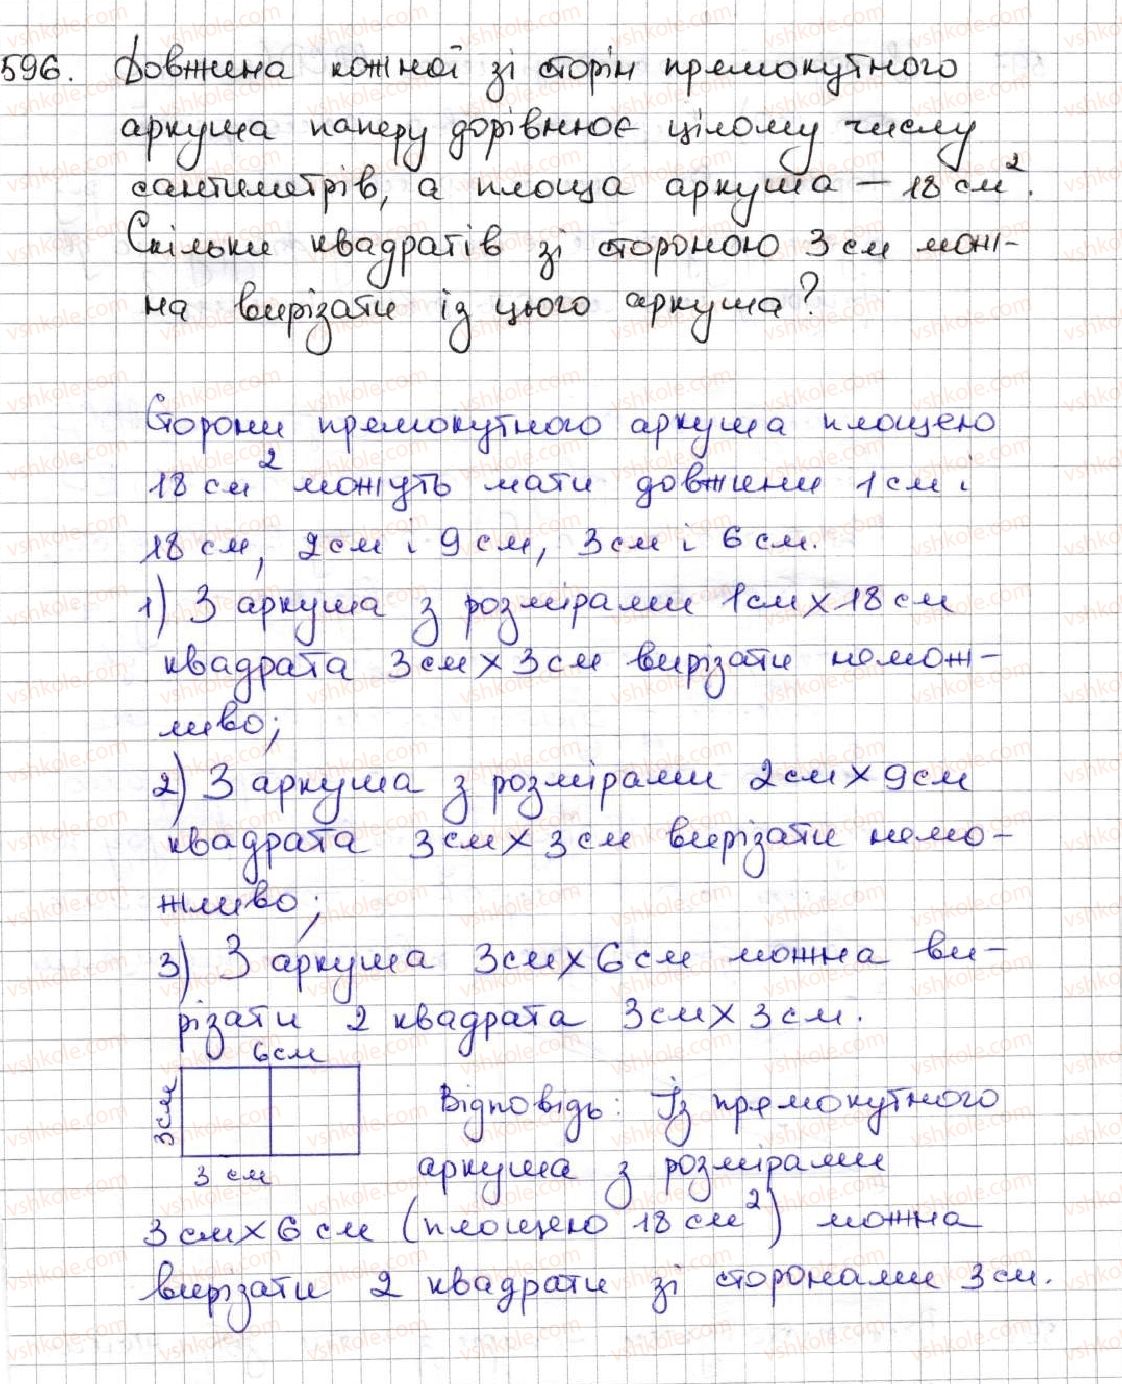 596. Довжина кожної зі сторін прямокутного
аркуша паперу дорівнює цілому числу
сантиметрів, а площа аркуша – 18 см².
Скільки квадратів зі стороною 3 см мож-
на вирізати із цього аркуша?
Сторони прямокутного аркуша площею
18 см² можуть мати довжини 1 см і
18 см, 2 см і 9 см, 3 см і 6 см.
1) З аркуша з розмірами 1см×18 см
квадрата 3 см × 3 см вирізати немож-
ливо;
2) З аркуша з розмірами 2 см × 9 см
квадрата 3 см × 3 см вирізати немо-
жливо;
3) З аркуша 3см×6 см можна ви-
різати 2 квадрата 3 см × 3 см.
6см
3см
3 см
Відповідь: Із прямокутного
аркуша з розмірами
3 см×6 см (площею 18 см²) можна
вирізати 2 квадрати зі сторонами 3 см.
vshkole.com